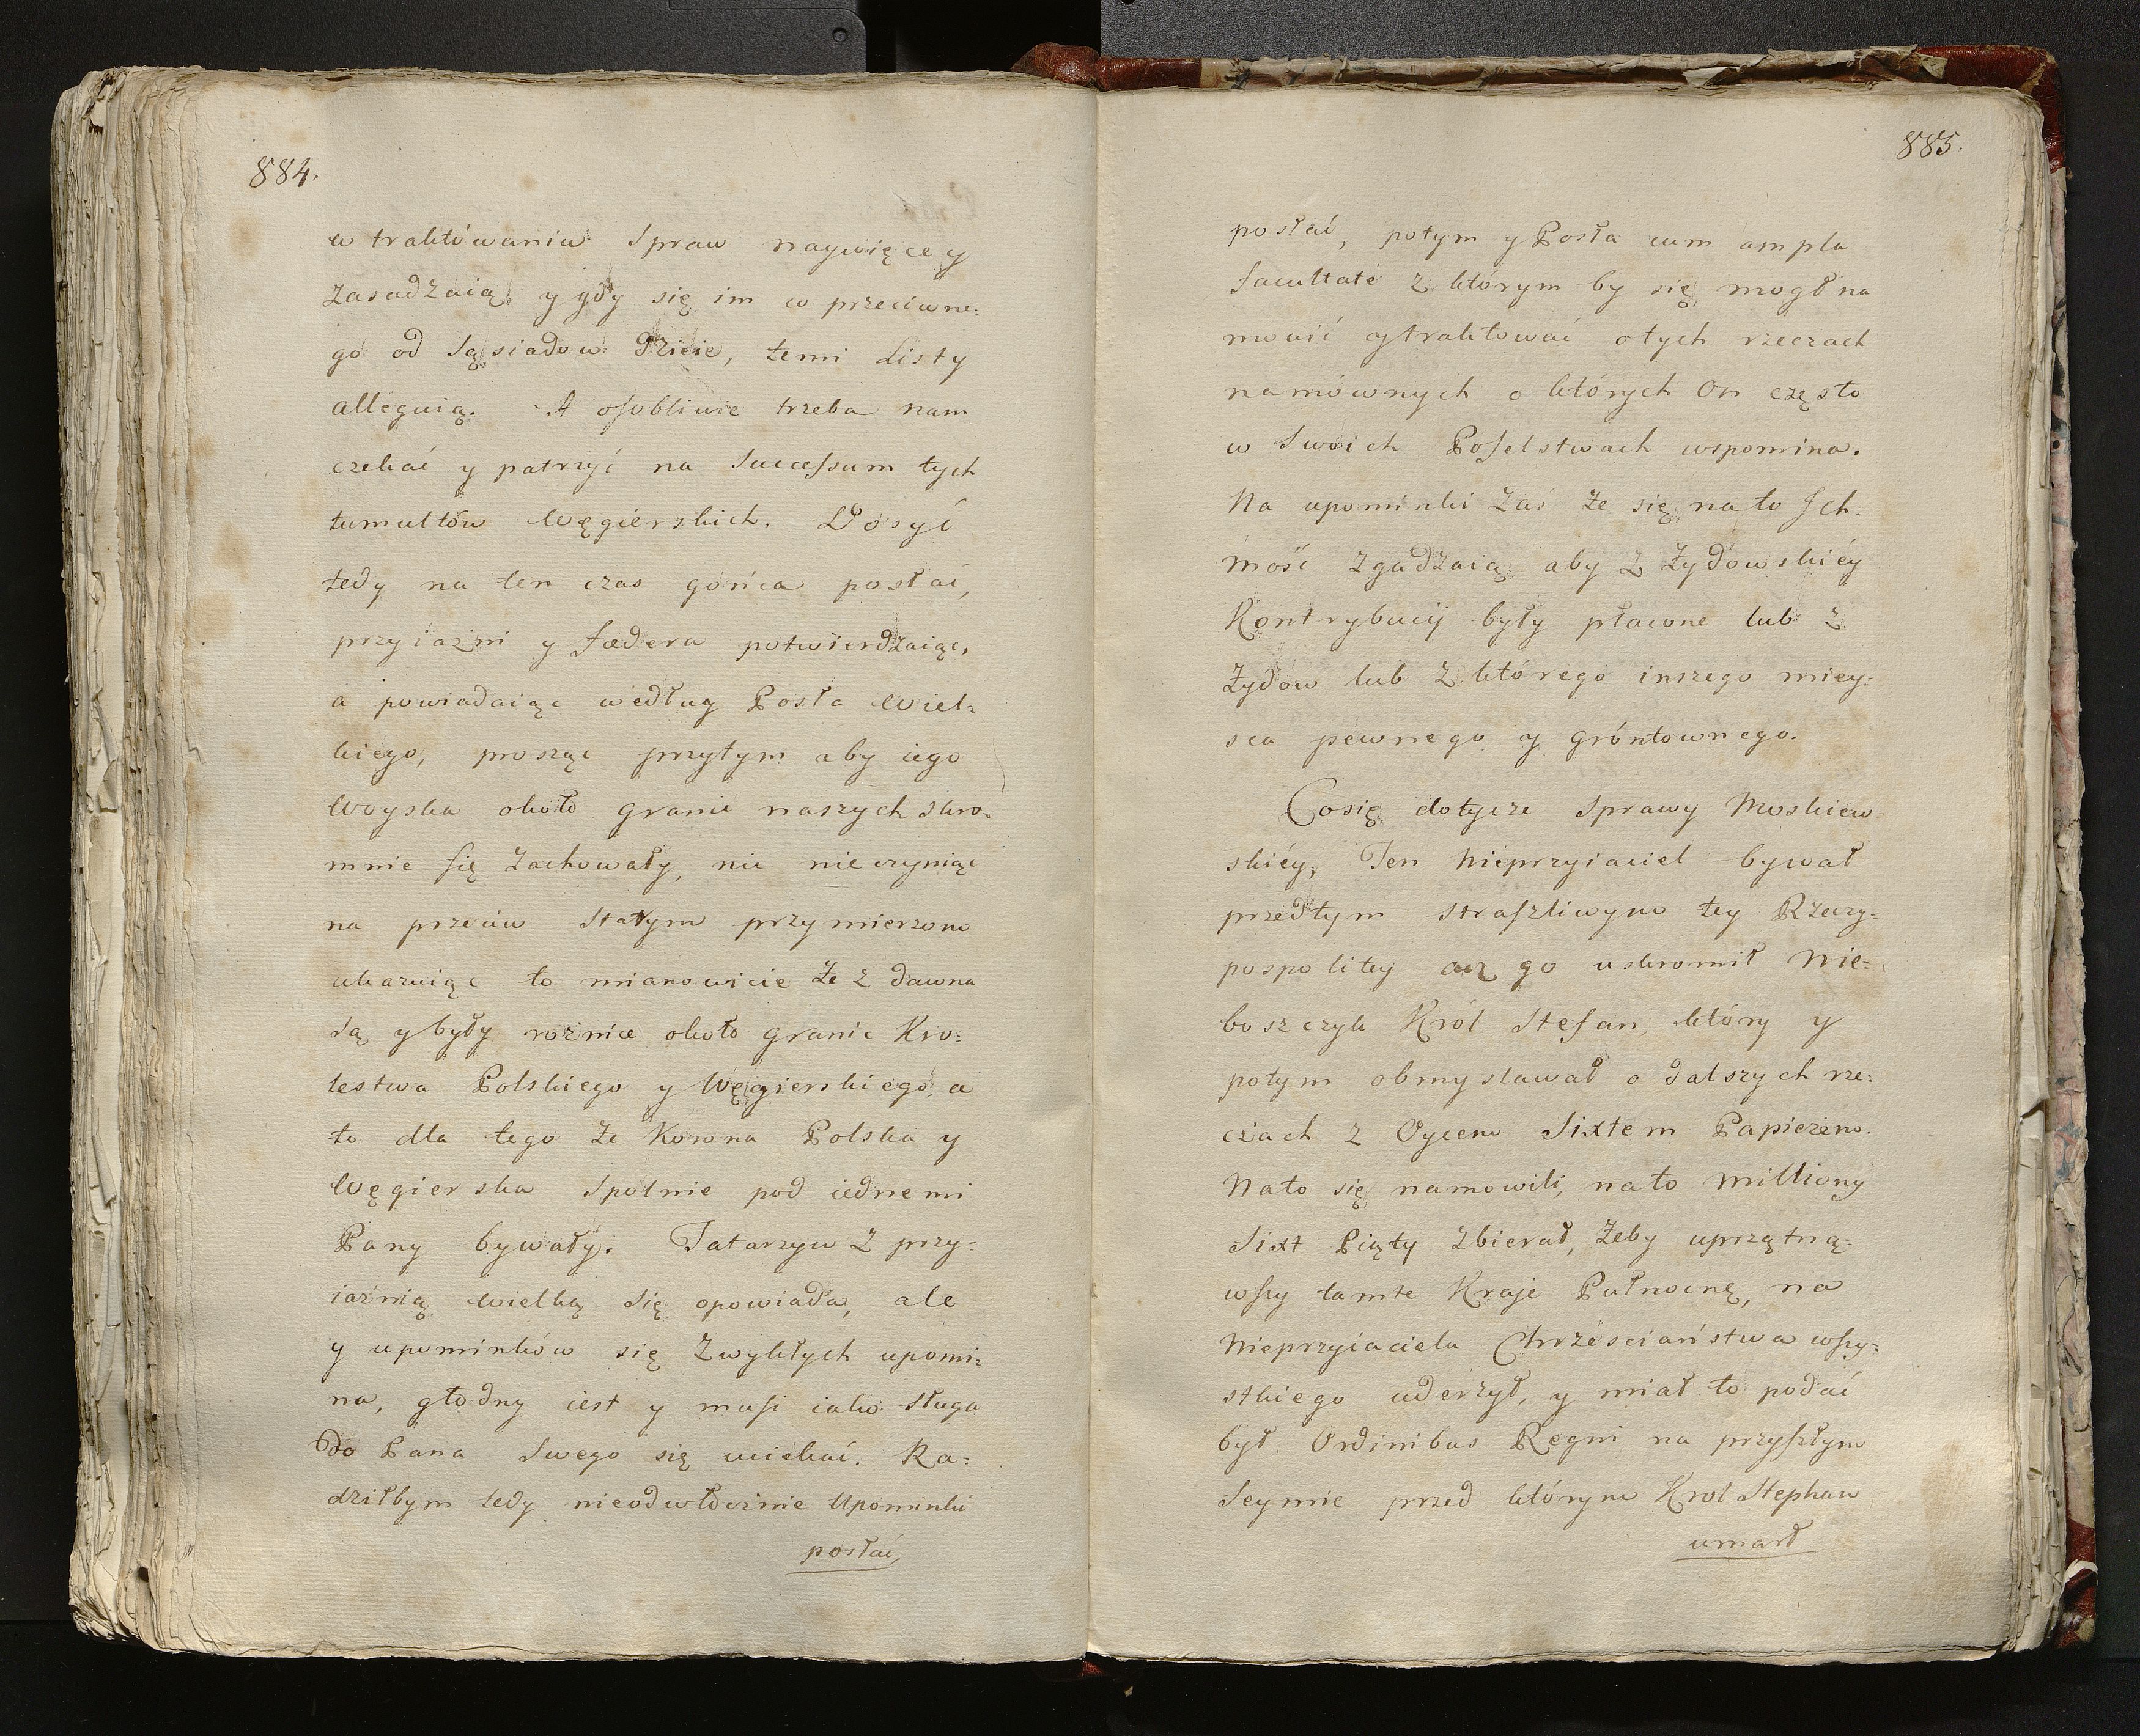 884.
w traktówaniu Spraw naywięcey
zasadzaią, y gdy się im co przeciwne-
go od Sąsiadow dzieie, temi Listy
alleguią. A osobliwie trzeba nam
czekać y patrzyć na Successum tych
tumultów Węgierskich. Dosyć
tedy na ten czas gońca posłać,
przyiaźni y fœdera potwierdzaiąc,
a powiadaiąc według Posła Wiel-
kiego, prosząc przytym aby iego
Woyska około granic naszych skro-
mnie się zachowały, nic nieczyniąc
na przeciw Stałym przymierzom
ukazuiąc to mianowicie że z dawna
są y były roźnice około granic Kro-
lestwa Polskiego y Węgierskiego, a
to dla tego że Korona Polska y
Węgierska Spolnie pod iednemi
Pany bywały. Tatarzyn z przy-
iaźnią wielką się opowiada, ale
y upominków się zwykłych upomi-
na, głodny iest y musi iako sługa
do Pana Swego się uciekać. Ra-
dziłbym tedy nieodwłocznie Upominki
posłać,
885.
posłać, potym y Posła cum ampla
facultate z którym by się mogł na
mowić y traktować o tych rzeczach
namównych o których On często
w Swoich Poselstwach wspomina.
Na upominki zaś że się na to Ich-
mość zgadzaią aby z Żydówskiéy
Kontrybucij były płacone lub z
Żydow lub z którego inszego miey-
sca pewnego y gróntownego.
Co się dotycze Sprawy Moskiew-
skiéy, Ten Nieprzyiaciel bywał
przedtym straszliwym tey Rzeczy-
pospolitey aż go uskromił Nie-
boszczyk Król Stefan, który y
potym obmyslawał o dalszych rze-
czach z Oycem Sixtem Papieżem.
Nato się namowili, nato Milliony
Sixt Piąty zbierał, żeby uprzątną-
wszy tamte Kraje Pułnocnę, na
Nieprzyiaciela Chrześciaństwa wszy-
stkiego uderzył, y miał to podać
był Ordinibus Regni na przyszłym
Seymie przed którym Krol Stephan
umarł